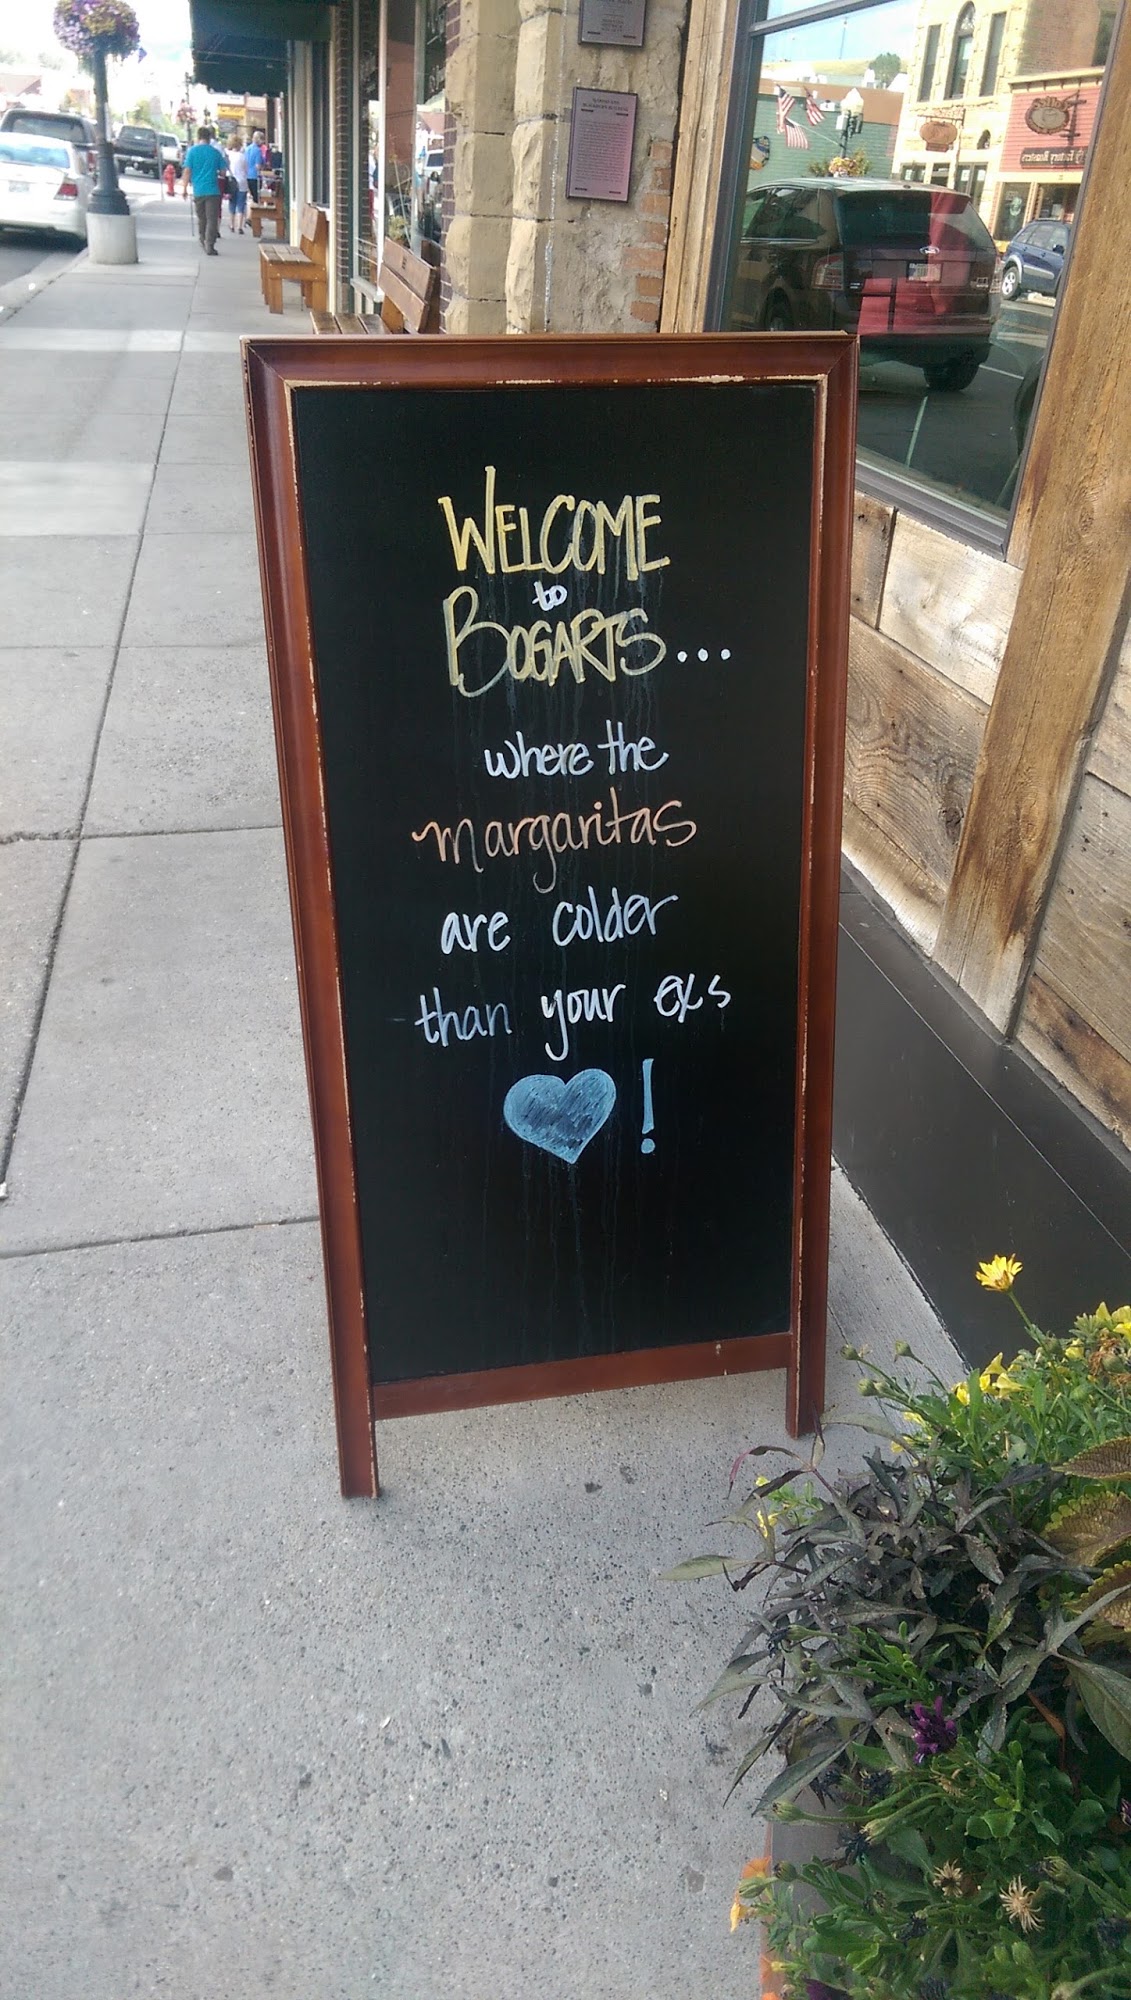 WELCOME
to
BOGARTS...
where the
margaritas
are colder
than your exs
♥!
Ford